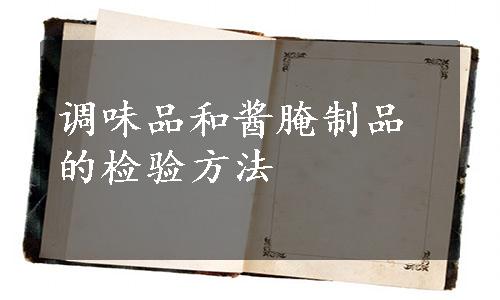 调味品和酱腌制品
的检验方法